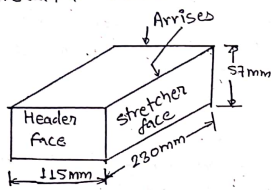 Arrises
57mm
Header
face
Stretcher
face
115mm
230mm